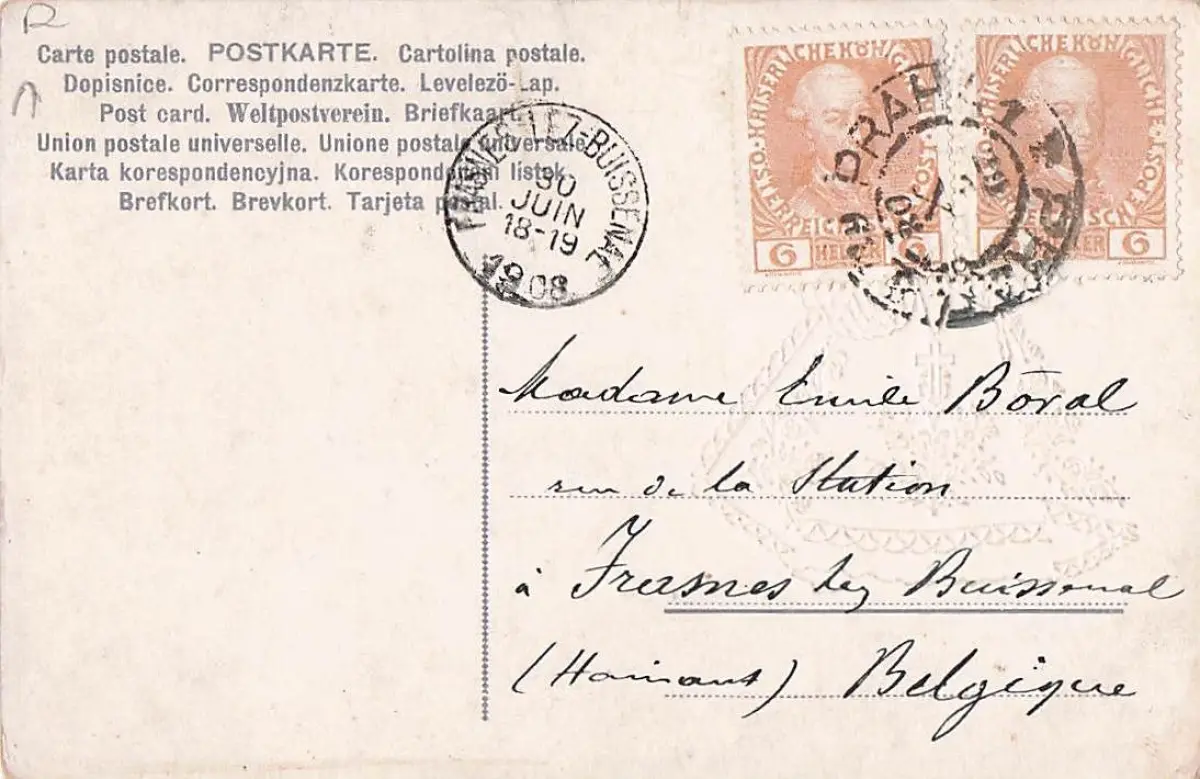 R
Carte postale. POSTKARTE. Cartolina postale.
Dopisnice. Correspondenzkarte. Levelező-Lap.
Post card. Weltpostverein. Briefkaart.
Union postale universelle. Unione postale universale.
Karta korespondencyjna. Korespondenční lístek.
Brefkort. Brevkort. Tarjeta postal.
FRASNES-LEZ-BUISSENAL
30
JUIN
18-19
1908
KAISERLICHE KÖNIGLICHE
ÖSTERREICHISCHE POST
6 HELLER 6
KAISERLICHE KÖNIGLICHE
ÖSTERREICHISCHE POST
HELLER 6
PRAHA 1
Madame Emile Bōval
rue de la Station
à Frasnes lez Buissenal
(Hainaut) Belgique